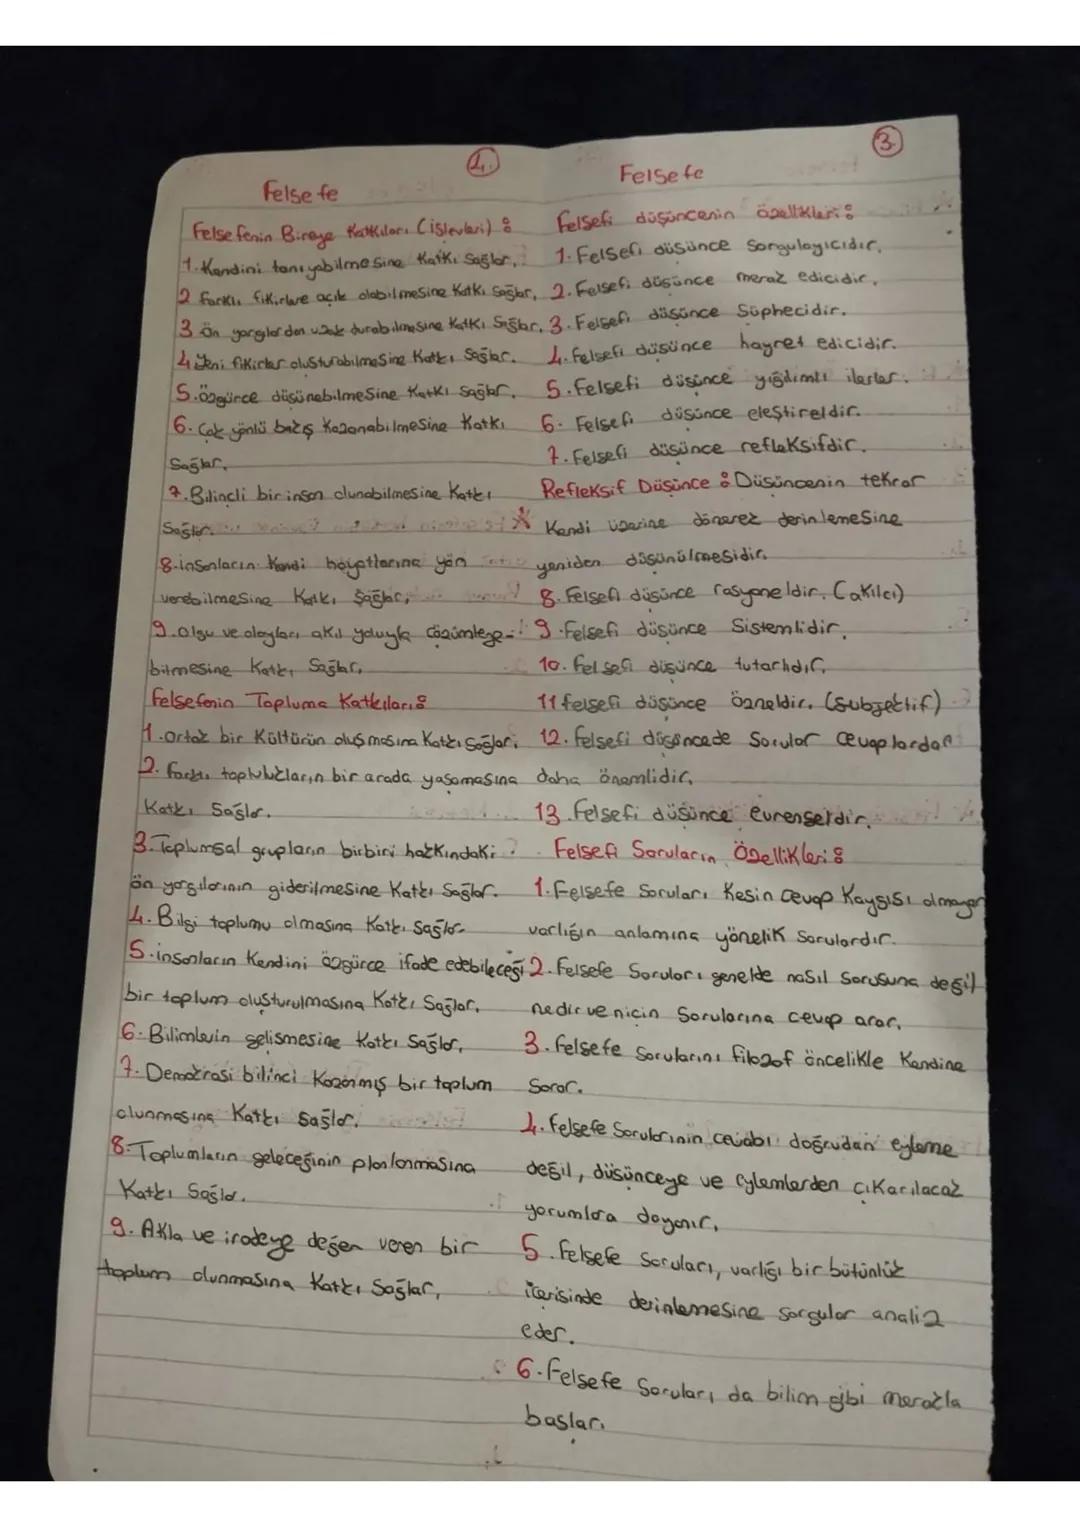 4.
Felsefe
Felsefenin Bireye Katkıları (işlevleri) :
1. Kendini tanıyabilmesine Katkı Sağlar.
2 farklı fikirlere açık olabilmesine Katkı Sağlar.
3 Ön yargılardan uzak durabilmesine Katkı Sağlar.
4 Yeni fikirler oluşturabilmesine Katkı Sağlar.
5. Özgürce düşünebilmesine Katkı Sağlar.
6. Çok yönlü bakış Kazanabilmesine Katkı
Sağlar.
7. Bilinçli bir insan olunabilmesine Katkı
Sağlar.
8. insanların Kendi hayatlarına yön
verebilmesine Katkı Sağlar.
9. Olgu ve olayları akıl yoluyla çözümleye-
bilmesine Katkı Sağlar.
Felsefenin Topluma Katkıları :
1. Ortak bir Kültürün oluşmasına Katkı Sağlar.
2. Farklı toplulukların bir arada yaşamasına
Katkı Sağlar.
3. Toplumsal grupların birbiri hakkındaki
ön yargılarının giderilmesine Katkı Sağlar.
4. Bilgi toplumu olmasına Katkı Sağlar
5. insanların Kendini özgürce ifade edebileceği
bir toplum oluşturulmasına Katkı Sağlar.
6. Bilimlerin gelişmesine Katkı Sağlar.
7. Demokrasi bilinci Kazanmış bir toplum
olunmasına Katkı Sağlar.
8. Toplumların geleceğinin planlanmasına
Katkı Sağlar.
9. Akla ve iradeye değer veren bir
toplum olunmasına Katkı Sağlar.
3.
Felsefe
Felsefi düşüncenin özellikleri :
1. Felsefi düşünce Sorgulayıcıdır.
2. Felsefi düşünce merak edicidir.
3. Felsefi düşünce Şüphecidir.
4. felsefi düşünce hayret edicidir.
5. Felsefi düşünce yığılımlı ilerler.
6. Felsefi düşünce eleştireldir.
7. Felsefi düşünce refleksifdir.
Refleksif Düşünce : Düşüncenin tekrar
Kendi üzerine dönerek derinlemesine
yeniden düşünülmesidir.
8. Felsefi düşünce rasyoneldir. (akılcı)
9. Felsefi düşünce Sistemlidir.
10. felsefi düşünce tutarlıdır.
11 felsefi düşünce özneldir. (subjektif)
12. felsefi düşüncede Sorular Cevaplardan
daha önemlidir.
13. Felsefi düşünce evrenseldir.
Felsefi Soruların Özellikleri :
1. Felsefe Soruları Kesin cevap Kaygısı olmayan
varlığın anlamına yönelik Sorulardır.
2. Felsefe Soruları genelde nasıl Sorusuna değil
nedir ve niçin Sorularına cevap arar.
3. felsefe Sorularını filozof öncelikle Kendine
Sorar.
4. felsefe Sorularının cevabı doğrudan eyleme
değil, düşünceye ve eylemlerden çıkarılacak
yorumlara dayanır.
5. felsefe Soruları, varlığı bir bütünlük
içerisinde derinlemesine sorgular analiz
eder.
6. Felsefe Soruları da bilim gibi merakla
başlar.